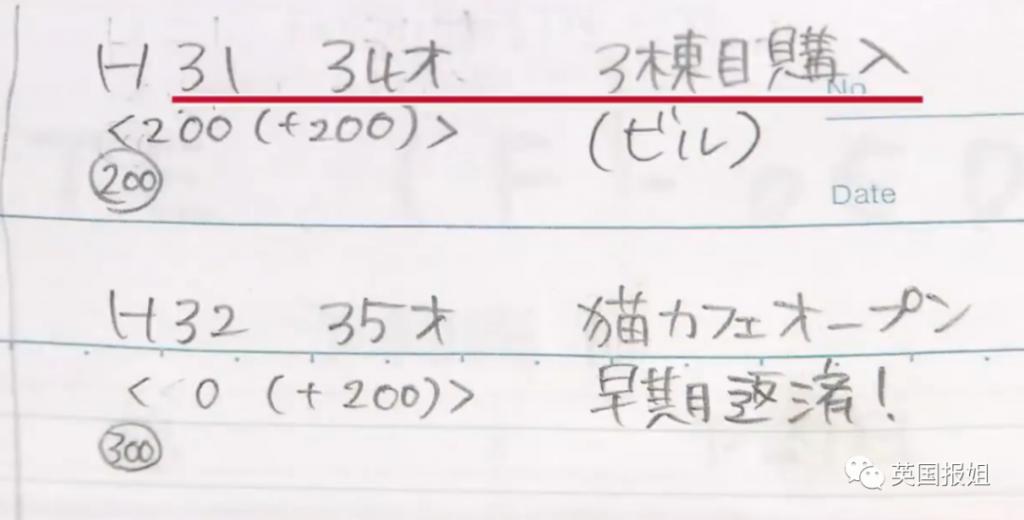 H31 34才 3棟目購入
No
<200 (+200)> (ビル)
200
Date
H32 35才 猫カフェオープン
< 0 (+200)> 早期返済!
300
英国报姐